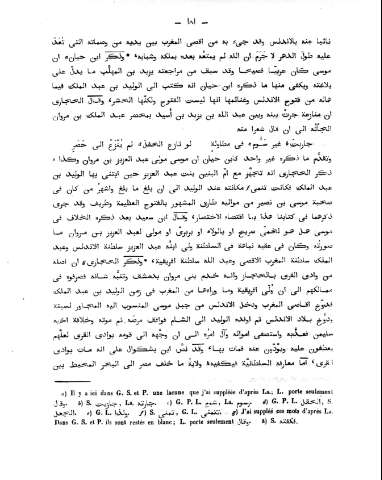 — ١٨١ —
نائبا عنه بالاندلس وقد جىء به من اقصى المغرب بين يديه من وصماته التى تُعَدّ
عليه طول الدهر لا جَرَمَ ان الله لم يمتعه بعده بملكه وشبابه وذكر ابن حيان ان
موسى كان عربيا فصيحا وقد سبف من مراجعته يزيد بن المهلب ما يدل على
بلاغته ويكفى منها ما ذكره ابن حيان انه كتب الى الوليد بن عبد الملك فيما
هاله من فتوح الاندلس وغنائمها انها ليست الفتوح ولكنّها الحشر، وقال الحجارى
ان معارضة جرت بينه وبين عبد الله بن يزيد بن أسيد بمحضر عبد الملك بن مروان
الجأته الى ان قال شعرا منه
جاريت غير سئوم فى مطاولة لو نازع الحفل لم ينزع الى حصر
وتقدم ما ذكره غير واحد كابن حيان ان موسى مولى عبد العزيز بن مروان وكذا
ذكر الحجارى انه تجهز مع أم البنين بنت عبد العزيز حين ابتنى بها الوليد بن
عبد الملك فكانت تنمى مكانته عند الوليد الى ان بلغ ما بلغ واشهر من كان فى
صحبة موسى بن نصير من مواليه طارق المشهور بالفتوح العظيمة وطريف وقد جرى
ذكرهما فى كتابنا هذا بما اقتضاه الاختصار، وقال ابن سعيد بعد ذكره الخلاف فى
موسى هل هو لخمى صريح او بالولاء او بربرى او مولى لعبد العزيز بن مروان ما
صورته وكان فى عقبه نباهة فى السلطنة ولى ابنه عبد العزيز سلطنة الاندلس وعبد
الملك سلطنة المغرب الاقصى وعبد الله سلطنة افريقية وذكر الحجارى ان اصله
من وادى القرى بالحجاز وانه خدم بنى مروان بدمشق وتنبه شانه فصرفوه فى
ممالكهم الى ان ولى افريقية وما وراءها من المغرب فى زمن الوليد بن عبد الملك
فدوخ اقاصى المغرب ودخل الاندلس من جبل موسى المنسوب اليه المجاور لسبتة
ودوخ بلاد الاندلس ثم اوفده الوليد الى الشام فوافف مرضه ثم موته وخلافة اخيه
سليمن فعذبه واستصفى امواله وآل امره الى ان وجهه الى قومه بوادى القرى لعلهم
يعطفون عليه ويودون عنه فمات بها، وقد نص ابن بشكوال على انه مات بوادى
القرى، أما معارفه السلطانية فيكفيه ولاية ما خلف مصر الى البحر المحيط بين
a) Il y a ici dans G. S. et P. une lacune que j'ai suppléée d'après La.; L. porte seulement
وقال. b) S. جاريت, La. جارته. c) G. P. L. شوم, La. مرسوم. d) G. P. L. الحقل, S.
الجعل. e) G. S. ولهذا. f) S. تمنى. g) J'ai suppléé ces mots d'après La.
Dans G. S. et P. ils sont restés en blanc; L. porte seulement وقال. h) S.